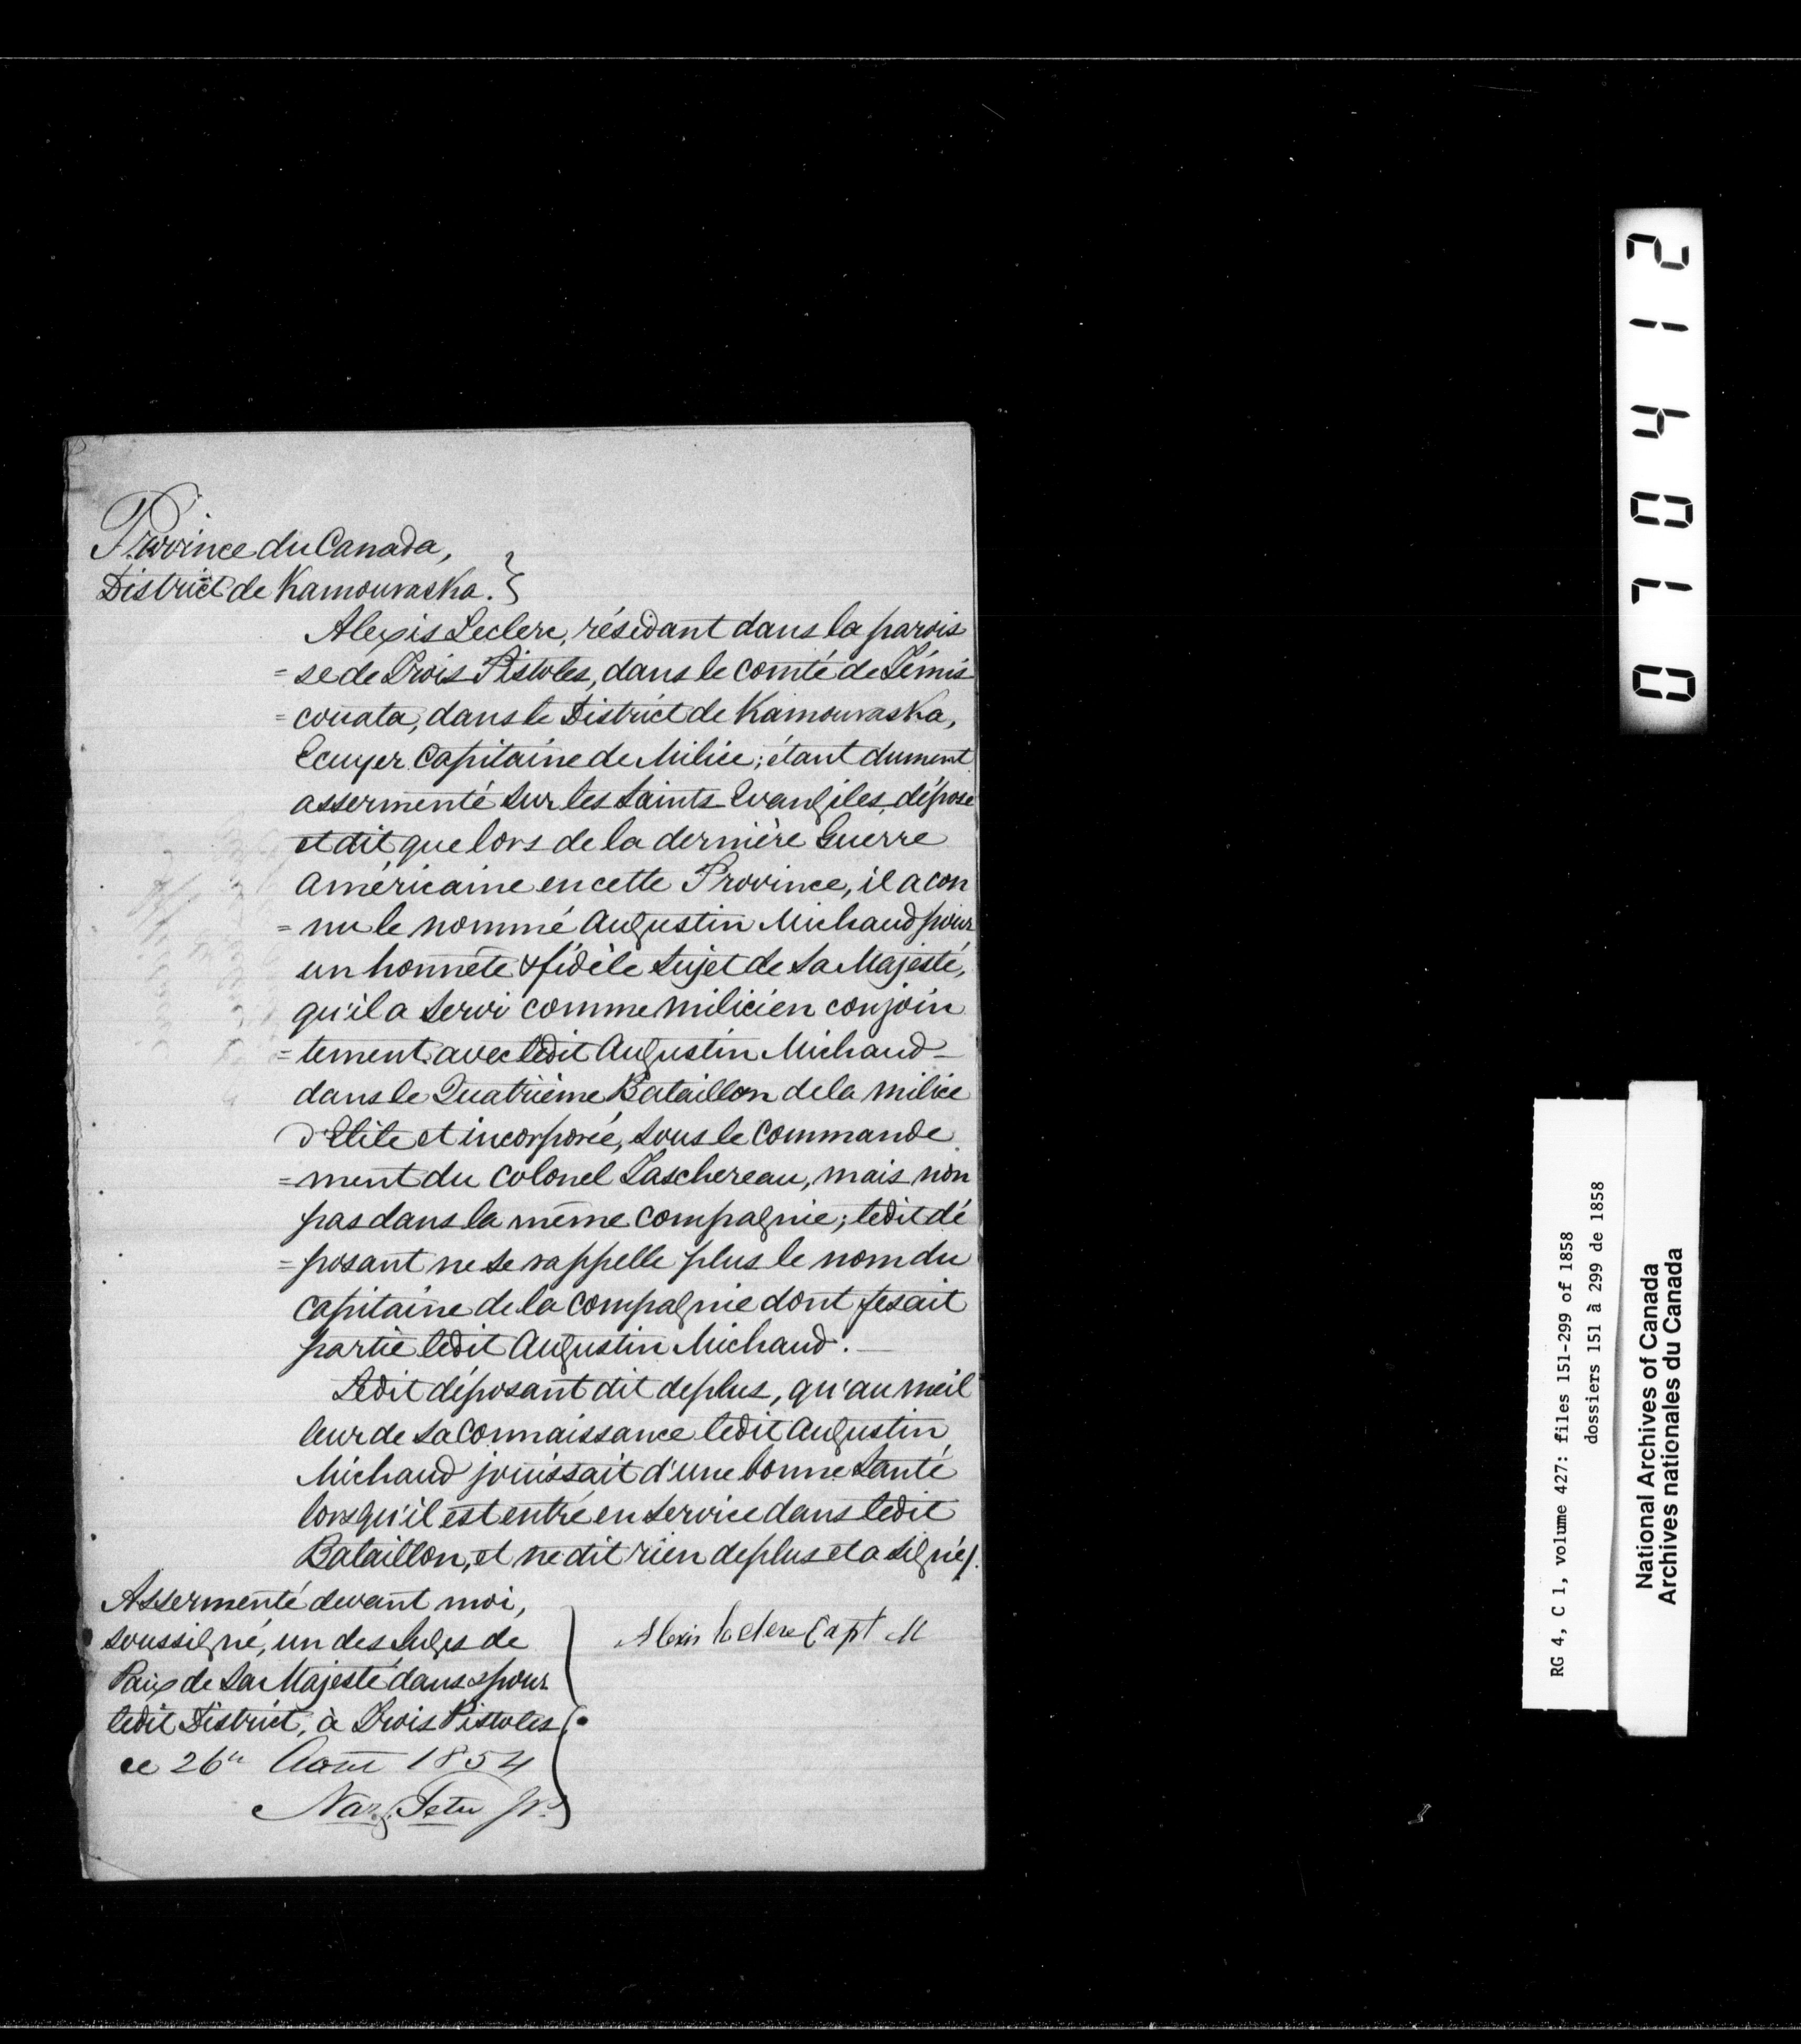 Province du Canada,
District de Kamouraska. }
Alexis Leclerc, résidant dans la parois
= se de Trois Pistoles, dans le comté de Témis
= couata, dans le District de Kamouraska,
Ecuyer Capitaine de Milice; étant dument
assermenté sur les Saints Evangiles, dépose
et dit que lors de la dernière Guerre
américaine en cette Province, il a con
= nu le nommé Augustin Michaud pour
un honnête & fidèle Sujet de Sa Majesté,
qu'il a servi comme milicien conjoin
= tement avec ledit Augustin Michaud -
dans le Quatrième Bataillon de la milice
d'Elite et incorporée, sous le commande
= ment du Colonel Taschereau, mais non
pas dans la même compagnie; ledit dé
= posant ne se rappelle plus le nom du
capitaine de la compagnie dont fesait
partie ledit Augustin Michaud. —
Ledit déposant dit de plus, qu'au meil
leur de sa connaissance ledit Augustin
Michaud jouissait d'une bonne santé
lorsqu'il est entré en service dans ledit
Bataillon, et ne dit rien de plus et a signé.
Assermenté devant moi,
soussigné, un des Juges de
Paix de Sa Majesté dans & pour
ledit District, à Trois Pistoles,
ce 26e Aout 1854
Naz. Tetu JP.
Alexis leclerc Capt M
071042
RG 4, C 1, volume 427: files 151-299 of 1858
dossiers 151 à 299 de 1858
National Archives of Canada
Archives nationales du Canada